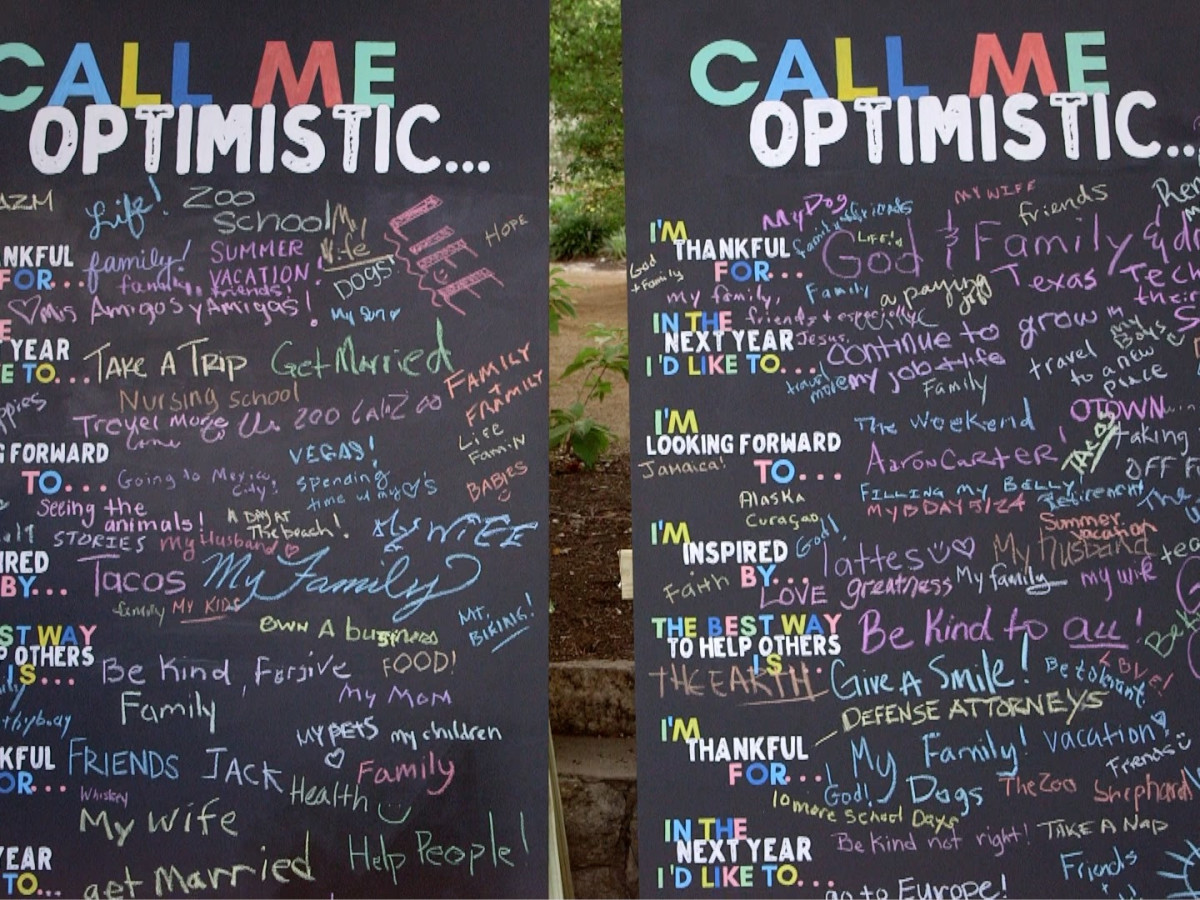 CALL ME
OPTIMISTIC...
AZM Life! Zoo school My Life HOPE
ANKFUL family! SUMMER VACATION! Dogs!
FOR... family, friends!
♡ Mis Amigos y Amigas! My Son ♡
YEAR TAKE A TRIP Get Married
E TO... Nursing school FAMILY + FRAMILY
Travel more
Life
G FORWARD VEGAS! BABIES
TO... Going to Mexico City! spending time w my ♡'s
Seeing the animals! A DAY AT The beach! My WIFE
STORIES My Husband ♡
IRED
BY... Tacos My Family
family MY KIDS Mt. BIKING!
OWN A business
ST WAY
P OTHERS
IS... Be Kind, Forgive FOOD!
Family My Mom
MY PETS my children
KFUL FRIENDS JACK ♡ Family
OR... Whiskey Health
My Wife
YEAR Help People!
TO... get Married
CALL ME
OPTIMISTIC...
My Dog friends MY WIFE friends
I'M
THANKFUL family LIFE! God & Family &
FOR...
God + Family
my family, Family a paying job Texas Tech
friends + especially Jesus.
IN THE
NEXT YEAR continue to grow in my job + life
I'D LIKE TO... travel more Family travel to a new place my Boys
I'M
LOOKING FORWARD The weekend OTOWN...
TO... Jamaica! Aaron Carter! Tacos taking OFF
Alaska FILLING MY BELLY, Retirement The
Curaçao MY BDAY 5/24
I'M
INSPIRED God! lattes ♡ My husband Summer vacation
BY... Faith LOVE greatness My family my wife
THE BEST WAY
TO HELP OTHERS Be Kind to all!
IS...
THE EARTH Give A Smile! Be tolerant LOVE!
DEFENSE ATTORNEYS
I'M
THANKFUL My Family! vacation!
FOR... God! Dogs The Zoo Friends
10 more School Days
IN THE
NEXT YEAR Be Kind not right! TAKE A NAP
I'D LIKE TO... Friends
go to Europe!